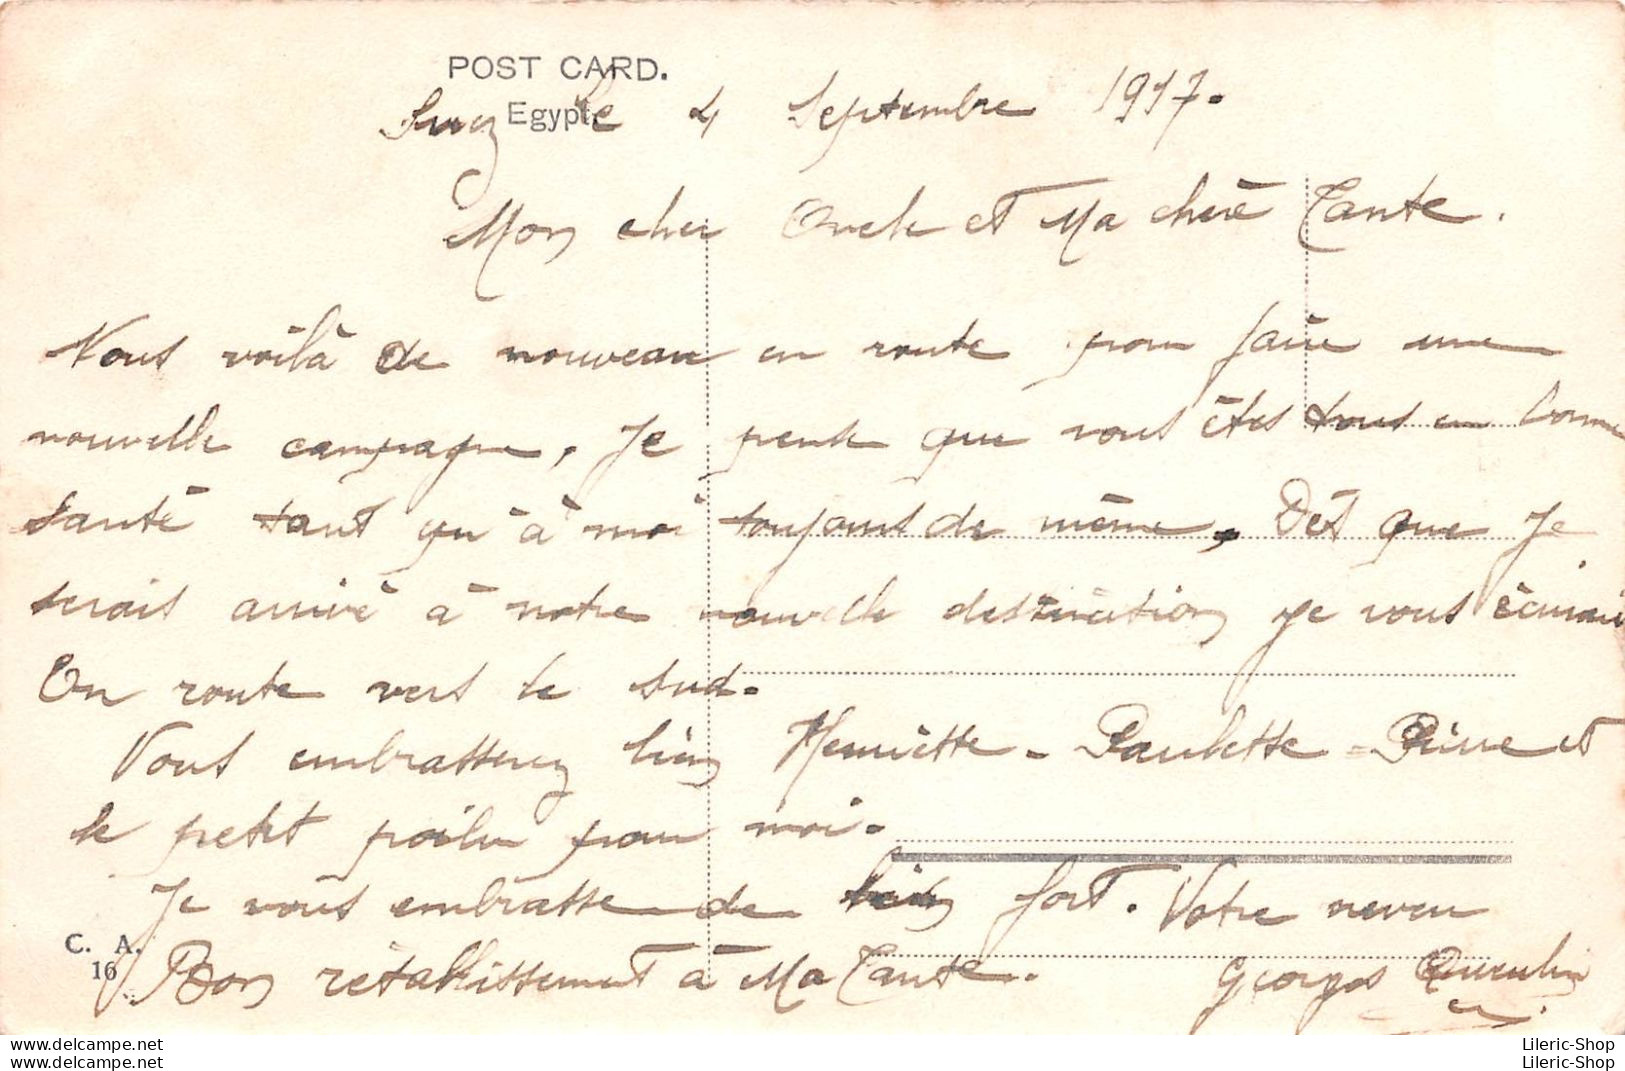 POST CARD.
Egypte
Suez le 4 Septembre 1917.
Mon cher Oncle et Ma chère Tante.
Vous voilà de nouveau en route pour faire une
nouvelle campagne, Je pense que vous êtes tous en bonne
santé tant qu'à moi toujours de même, Dès que Je
serais arrivé à notre nouvelle destination je vous écrirai
En route vers le sud.
Vous embrasserez bien Henriette - Paulette - Pierre et
le petit poilu pour moi.
Je vous embrasse de bien fort. Votre neveu
Bon rétablissement à Ma Tante. Georges
C. A.
16
delcampe.net
Lileric-Shop
delcampe.net
Lileric-Shop